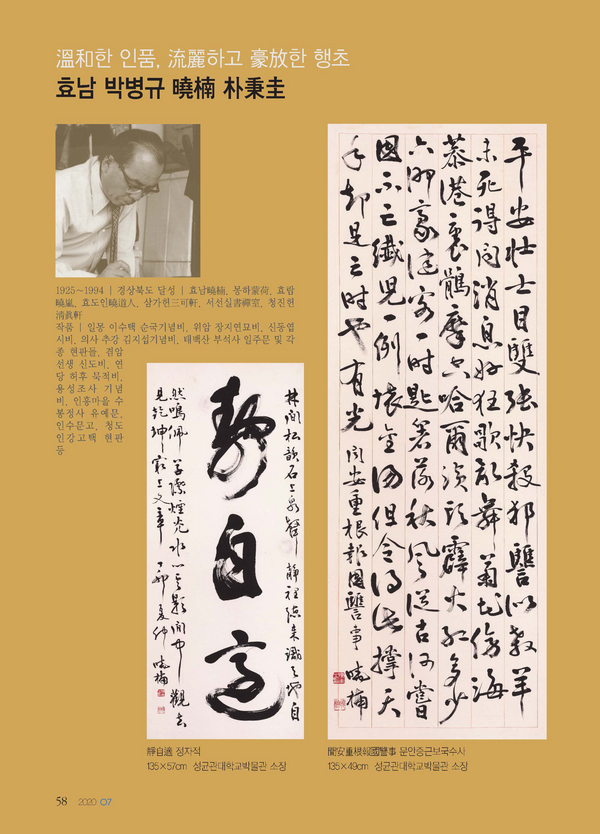 溫和한 인품, 流麗하고 豪放한 행초
효남 박병규 曉楠 朴秉圭
1925~1994 | 경상북도 달성 | 효남曉楠, 몽하蒙荷, 효람
曉嵐, 효도인曉道人, 삼가헌三可軒, 서선실書禪室, 청진헌
淸眞軒
작품 | 일봉 이수택 순국기념비, 위암 장지연묘비, 신동엽
시비, 의사 추강 김지섭기념비, 태백산 부석사 일주문 및 각
종 현판들, 겸암
선생 신도비, 연
당 허후 묵적비,
용성조사 기념
비, 인흥마을 수
봉정사 유예문,
인수문고, 청도
인강고택 현판
등
林間松韻石上泉聲 靜裡聽來識天地自
靜自適
然鳴佩 草際煙光水心雲影 閒中觀去
見乾坤最上文章 丁卯夏節 曉楠
靜自適 정자적
135×57cm 성균관대학교박물관 소장
平安壯士目雙張快殺邦讐似殺羊
未死得聞消息好狂歌亂舞菊花傍海
蔘港裏鶻摩空哈爾濱頭霹火紅多少
六洲豪健客一時匙箸落秋風從古何嘗
國不亡纖兒一例壞金湯但令得此撑天
手却是亡時也有光 聞安重根報國讐事 曉楠
聞安重根報國讐事 문안중근보국수사
135×49cm 성균관대학교박물관 소장
58 2020 07